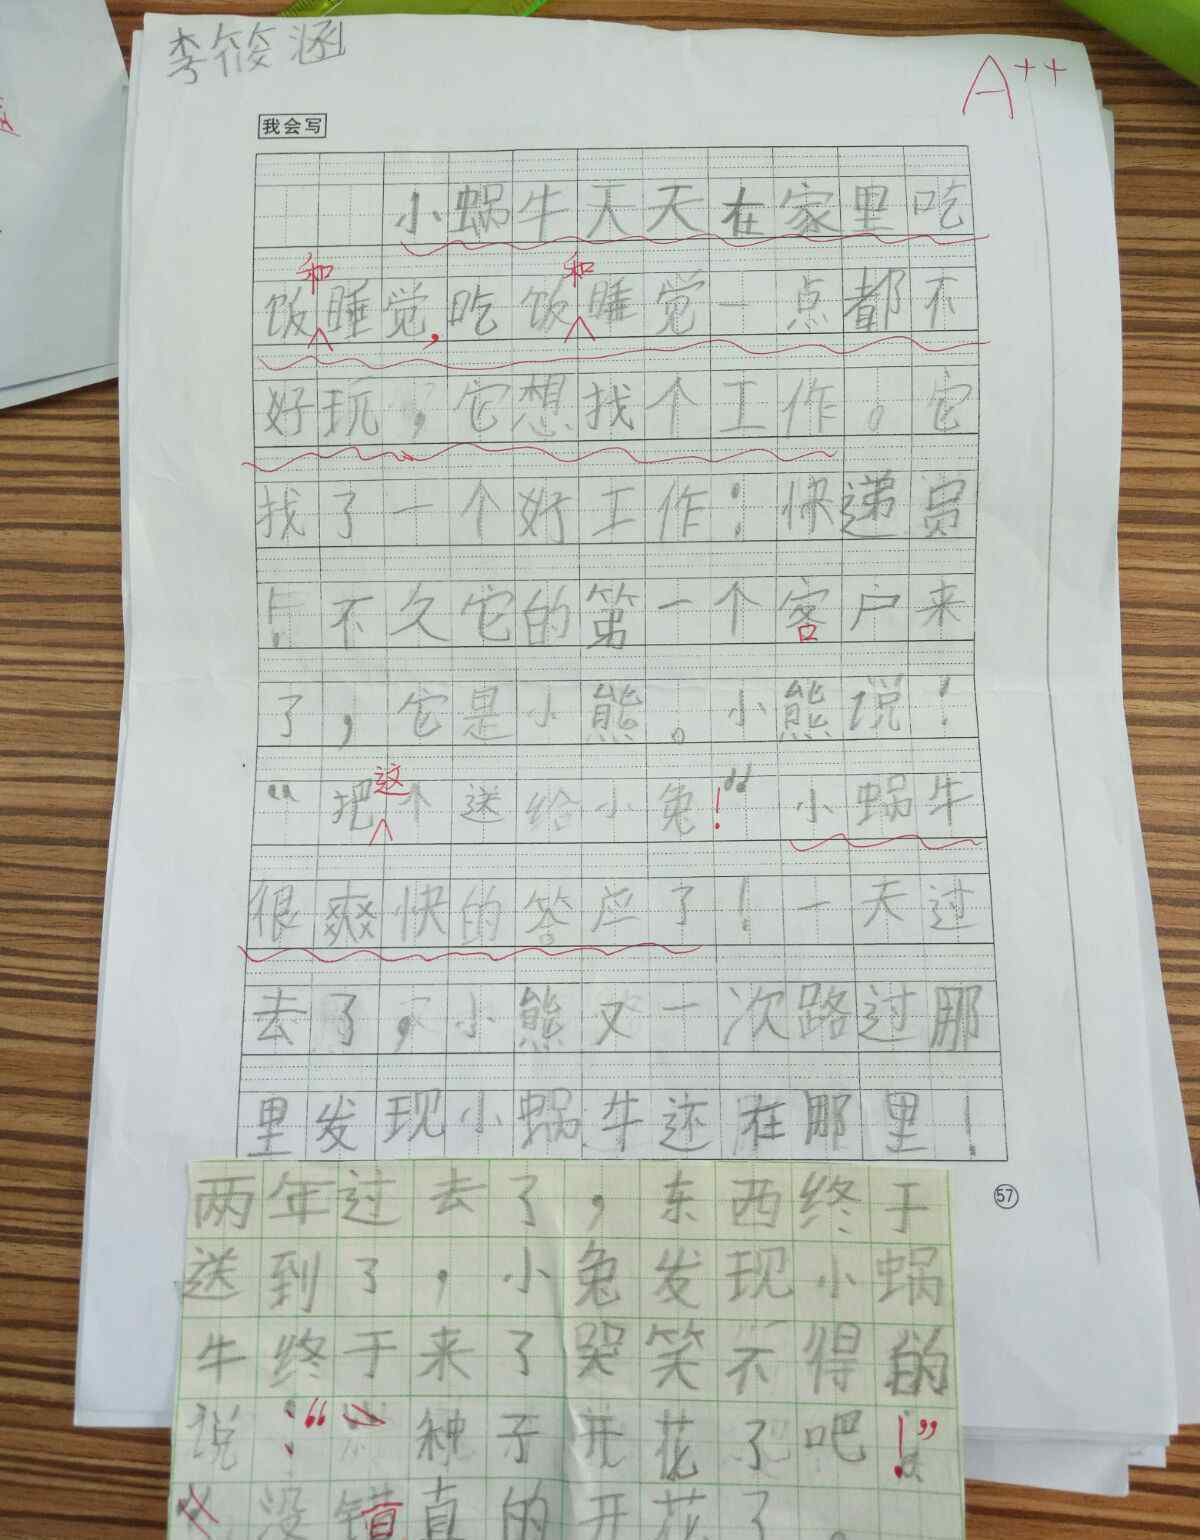 李筱涵
A++
我会写
小蜗牛天天在家里吃
饭和睡觉,吃饭和睡觉一点都不
好玩,它想找个工作。它
找了一个好工作:快递员
!不久它的第一个客户来
了,它是小熊。小熊说:
“把这个送给小兔!”小蜗牛
很爽快的答应了!一天过
去了,小熊又一次路过那
里发现小蜗牛还在那里!
57
两年过去了,东西终于
送到了,小兔发现小蜗
牛终于来了哭笑不得的
说:“种子开花了吧!”
没错真的开花了。